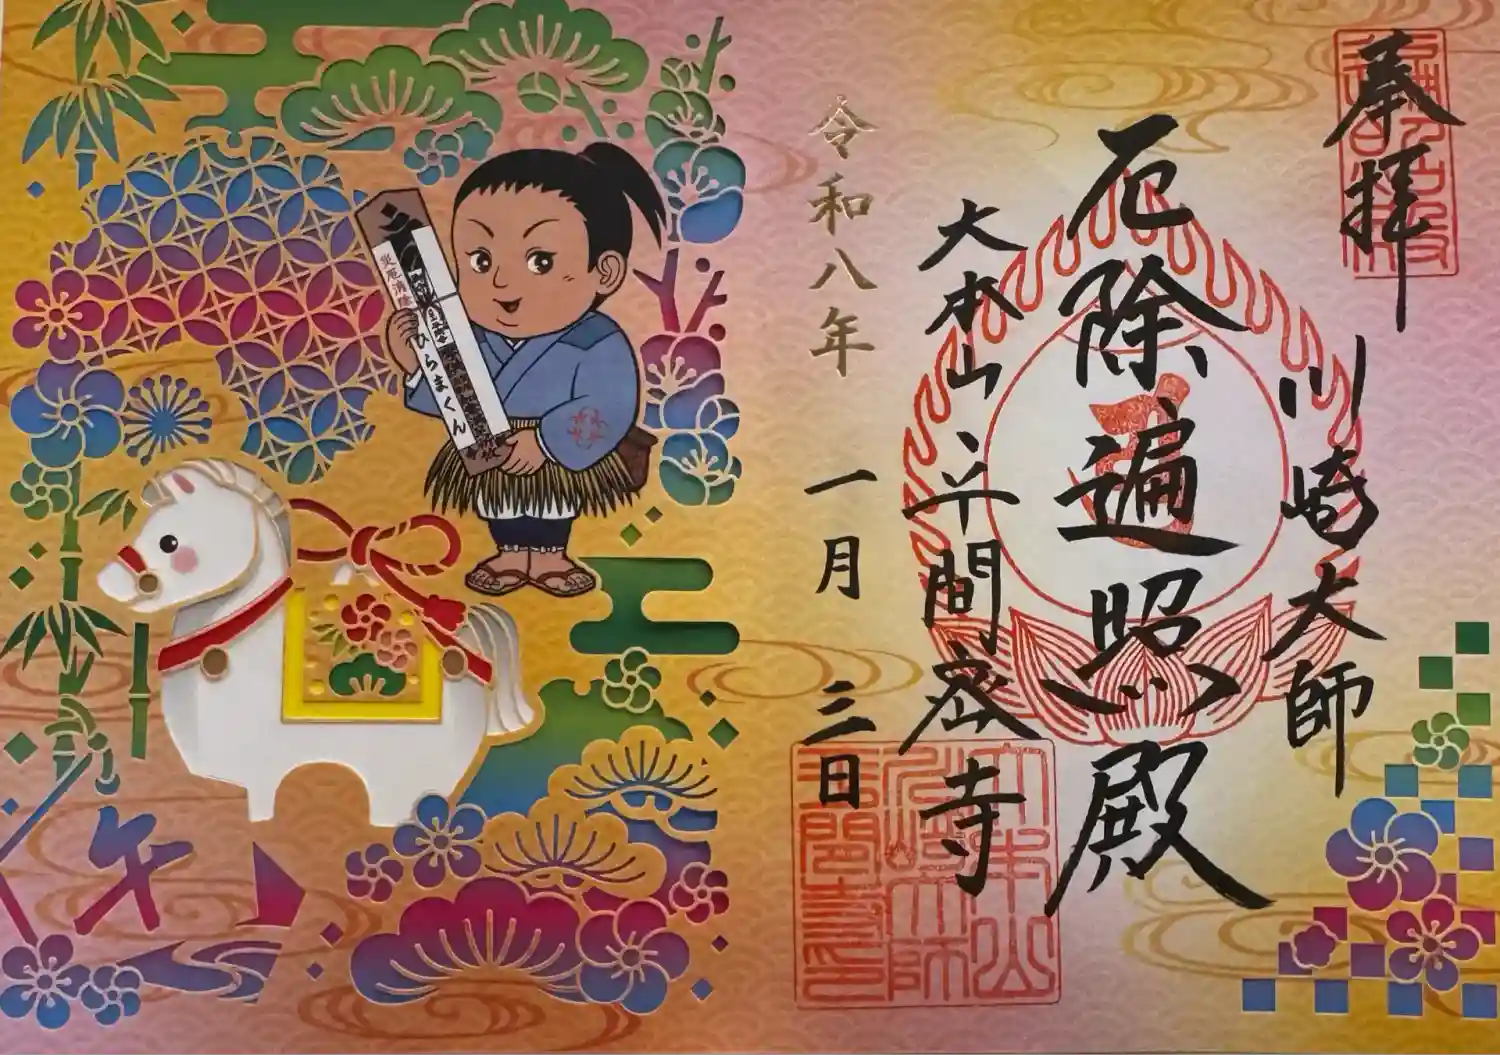 奉拝
川崎大師
厄除遍照殿
大本山平間寺
令和八年 一月 三日
災厄消除
ひらまくん
午